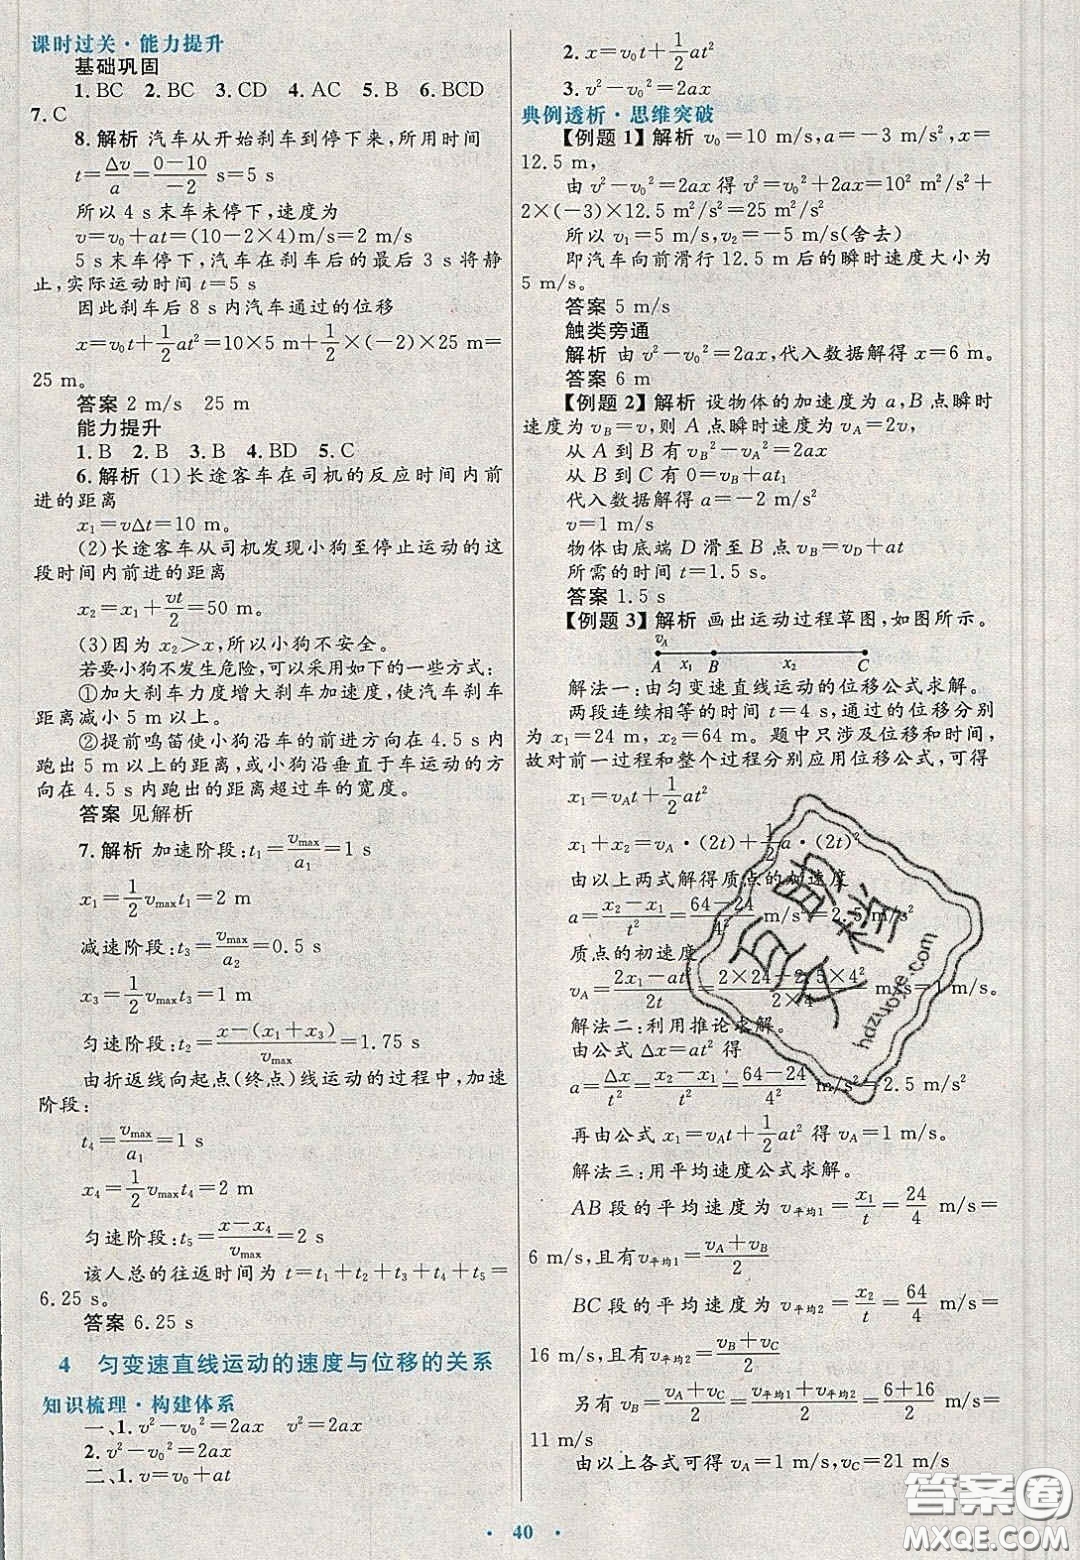 课时过关·能力提升
基础巩固
1. BC　2. BC　3. CD　4. AC　5. B　6. BCD
7. C
8. 解析 汽车从开始刹车到停下来,所用时间
t=Δv/a=(0-10)/(-2) s=5 s
所以 4 s 末车未停下,速度为
v=v₀+at=(10-2×4)m/s=2 m/s
5 s 末车停下,汽车在刹车后的最后 3 s 将静
止,实际运动时间 t=5 s
因此刹车后 8 s 内汽车通过的位移
x=v₀t+1/2 at²=10×5 m+1/2×(-2)×25 m=
25 m。
答案 2 m/s　25 m
能力提升
1. B　2. B　3. B　4. BD　5. C
6. 解析 (1)长途客车在司机的反应时间内前
进的距离
x₁=vΔt=10 m。
(2)长途客车从司机发现小狗至停止运动的这
段时间内前进的距离
x₂=x₁+vt/2=50 m。
(3)因为 x₂>x,所以小狗不安全。
若要小狗不发生危险,可以采用如下的一些方式:
①加大刹车力度增大刹车加速度,使汽车刹车
距离减小 5 m 以上。
②提前鸣笛使小狗沿车的前进方向在 4.5 s 内
跑出 5 m 以上的距离,或小狗沿垂直于车运动的方
向在 4.5 s 内跑出的距离超过车的宽度。
答案 见解析
7. 解析 加速阶段:t₁=vmax/a₁=1 s
x₁=1/2 vmax t₁=2 m
减速阶段:t₃=vmax/a₂=0.5 s
x₃=1/2 vmax t₃=1 m
匀速阶段:t₂=(x-(x₁+x₃))/vmax=1.75 s
由折返线向起点(终点)线运动的过程中,加速
阶段:
t₄=vmax/a₁=1 s
x₄=1/2 vmax t₄=2 m
匀速阶段:t₅=(x-x₄)/vmax=2 s
该人总的往返时间为 t=t₁+t₂+t₃+t₄+t₅=
6.25 s。
答案 6.25 s
4　匀变速直线运动的速度与位移的关系
知识梳理·构建体系
一、1. v²-v₀²=2ax　v²=2ax
2. v²-v₀²=2ax
二、1. v=v₀+at
2. x=v₀t+1/2 at²
3. v²-v₀²=2ax
典例透析·思维突破
【例题 1】解析 v₀=10 m/s,a=-3 m/s²,x=
12.5 m,
由 v²-v₀²=2ax 得 v²=v₀²+2ax=10² m²/s²+
2×(-3)×12.5 m²/s²=25 m²/s²
所以 v₁=5 m/s,v₂=-5 m/s(舍去)
即汽车向前滑行 12.5 m 后的瞬时速度大小为
5 m/s。
答案 5 m/s
触类旁通
解析 由 v²-v₀²=2ax,代入数据解得 x=6 m。
答案 6 m
【例题 2】解析 设物体的加速度为 a,B 点瞬时
速度为 vB=v,则 A 点瞬时速度为 vA=2v,
从 A 到 B 有 vB²-vA²=2ax
从 B 到 C 有 0=vB+at₁
代入数据解得 a=-2 m/s²
v=1 m/s
物体由底端 D 滑至 B 点 vB=vD+at
所需的时间 t=1.5 s。
答案 1.5 s
【例题 3】解析 画出运动过程草图,如图所示。
vA
A　x₁　B　x₂　C
解法一:由匀变速直线运动的位移公式求解。
两段连续相等的时间 t=4 s,通过的位移分别
为 x₁=24 m,x₂=64 m。题中只涉及位移和时间,
故对前一过程和整个过程分别应用位移公式,可得
x₁=vAt+1/2 at²
x₁+x₂=vA·(2t)+1/2 a·(2t)²
由以上两式解得质点的加速度
a=(x₂-x₁)/t²=(64-24)/4² m/s²=2.5 m/s²
质点的初速度
vA=(2x₁-at²)/2t=(2×24-2.5×4²)/(2×4) m/s=1 m/s。
解法二:利用推论求解。
由公式 Δx=at² 得
a=Δx/t²=(x₂-x₁)/t²=(64-24)/4² m/s²=2.5 m/s²
再由公式 x₁=vAt+1/2 at² 得 vA=1 m/s。
解法三:用平均速度公式求解。
AB 段的平均速度为 v平均1=x₁/t=24/4 m/s=
6 m/s,且有 v平均1=(vA+vB)/2
BC 段的平均速度为 v平均2=x₂/t=64/4 m/s=
16 m/s,且有 v平均2=(vB+vC)/2
另有 vB=(vA+vC)/2=(v平均1+v平均2)/2=(6+16)/2 m/s=
11 m/s
由以上各式可得 vA=1 m/s,vC=21 m/s
· 40 ·
hdzuoye.com
答案圈
MXQE.COM